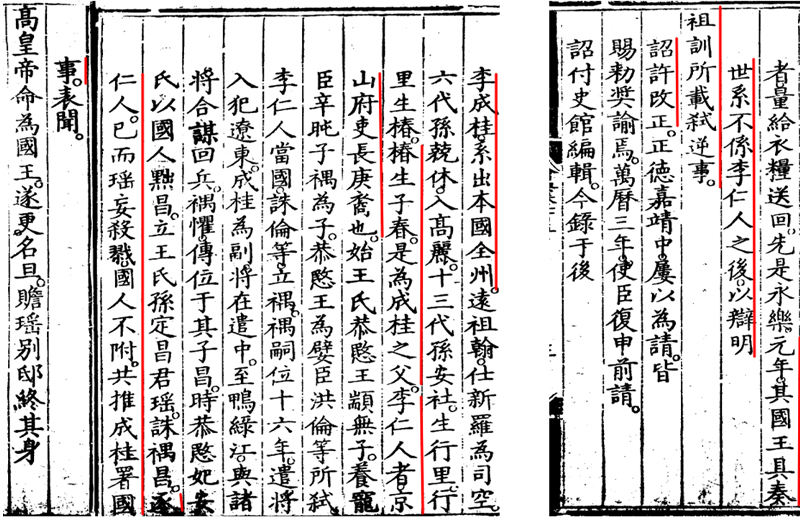 者量給衣糧送回。先是永樂。元年。其國王具奏
世系不係李仁人之後。以辯明
祖訓所載弑逆事。
詔許改正。正德嘉靖中。屢以為請。皆
賜勑奬諭焉。萬曆三年。使臣復申前請。
詔付史館編輯。今錄于後
李成桂。系出本國全州。遠祖翰。仕新羅為司空。
六代孫兢休。入高麗。十三代孫安社。生行里。行
里生椿。椿生子春。是為成桂之父。李仁人者。京
山府吏長庚裔也。始王氏恭愍王顓無子。養寵
臣辛旽子禑為子。恭愍王為嬖臣洪倫等所弑。
李仁人當國。誅倫等。立禑。禑嗣位十六年。遣將
入犯遼東。成桂為副將在遣中。至鴨綠江。與諸
將合謀回兵。禑懼。傳位于其子昌。時恭愍妃安
氏以國人黜昌。立王氏孫定昌君瑤。誅禑昌。逐
仁人。已而瑤妄殺戮國人不附。共推成桂署國
事。表聞。
高皇帝命為國王。遂更名旦。贍瑤別邸終其身